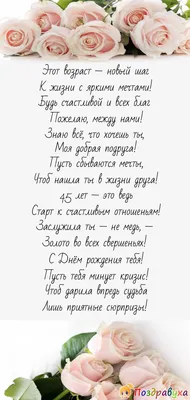 Этот возраст — новый шаг
К жизни с яркими мечтами!
Будь счастливой и всех благ
Пожелаю, между нами!
Знаю всё, что хочешь ты,
Моя добрая подруга!
Пусть сбываются мечты,
Чтоб нашла ты в жизни друга!
45 лет — это ведь
Старт к счастливым отношеньям!
Заслужила ты — не медь, —
Золото во всех свершеньях!
С Днём рождения тебя!
Пусть тебя минует кризис!
Чтоб дарила впредь судьба
Лишь приятные сюрпризы!
Поздравуха